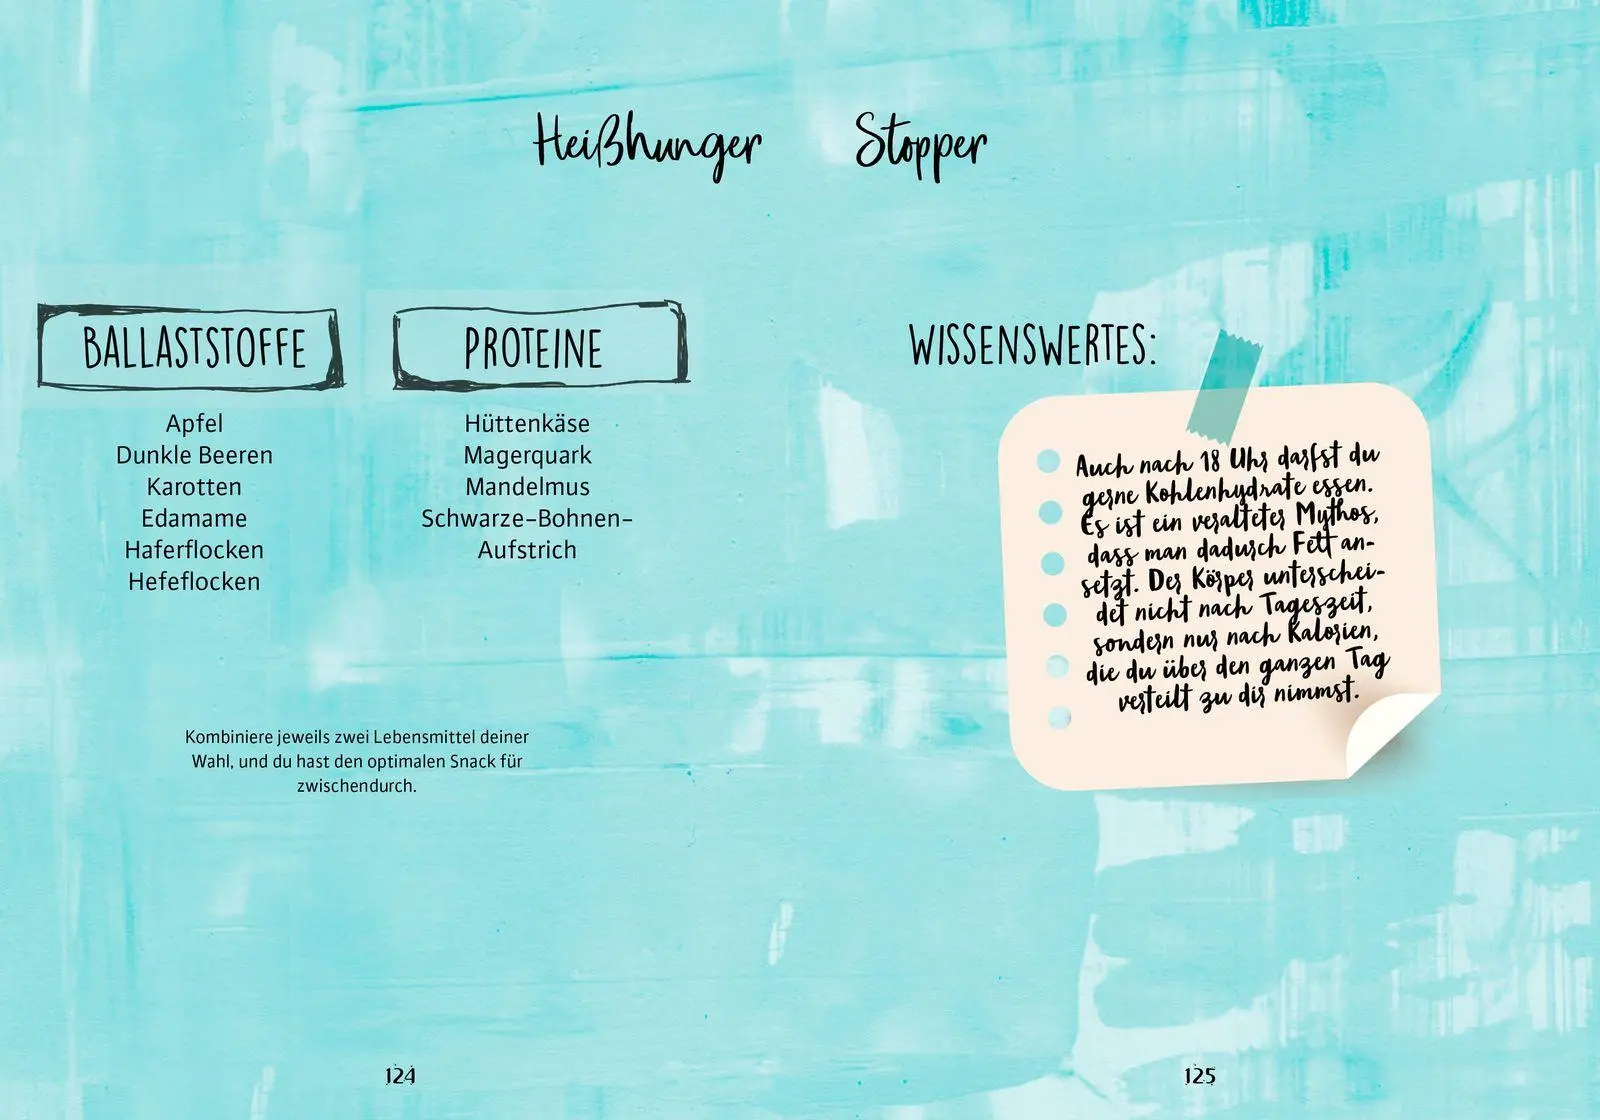 Heißhunger Stopper
BALLASTSTOFFE
Apfel
Dunkle Beeren
Karotten
Edamame
Haferflocken
Hefeflocken
PROTEINE
Hüttenkäse
Magerquark
Mandelmus
Schwarze-Bohnen-
Aufstrich
Kombiniere jeweils zwei Lebensmittel deiner
Wahl, und du hast den optimalen Snack für
zwischendurch.
124
WISSENSWERTES:
Auch nach 18 Uhr darfst du
gerne Kohlenhydrate essen.
Es ist ein veralteter Mythos,
dass man dadurch Fett an-
setzt. Der Körper unterschei-
det nicht nach Tageszeit,
sondern nur nach Kalorien,
die du über den ganzen Tag
verteilt zu dir nimmst.
125